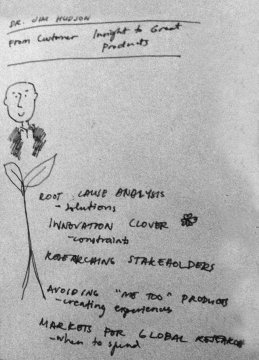 DR. JIM HUDSON
From Customer Insight to Great
Products
ROOT CAUSE ANALYSIS
- solutions
INNOVATION CLOVER
- constraints
RESEARCHING STAKEHOLDERS
AVOIDING "ME TOO" PRODUCTS
- creating experiences
MARKETS FOR GLOBAL RESEARCH
- when to spend